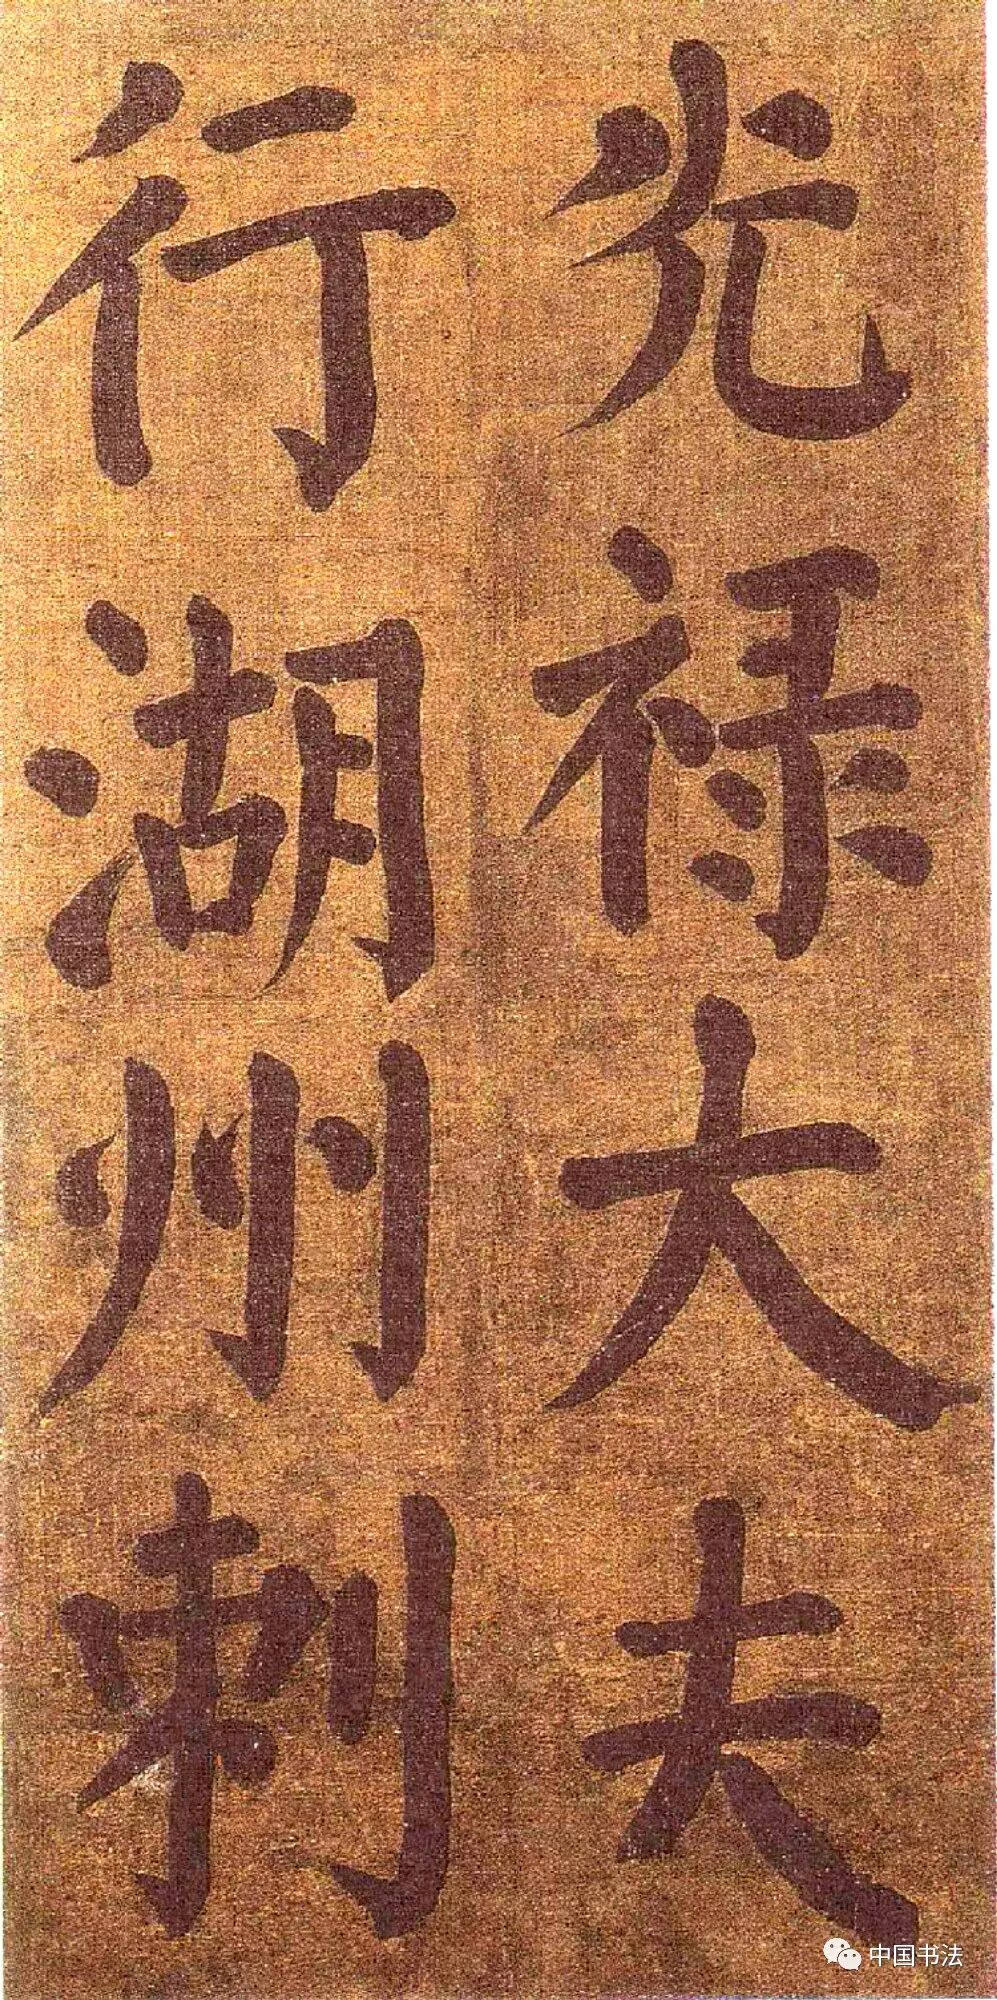 光禄大夫
行湖州刺
中国书法